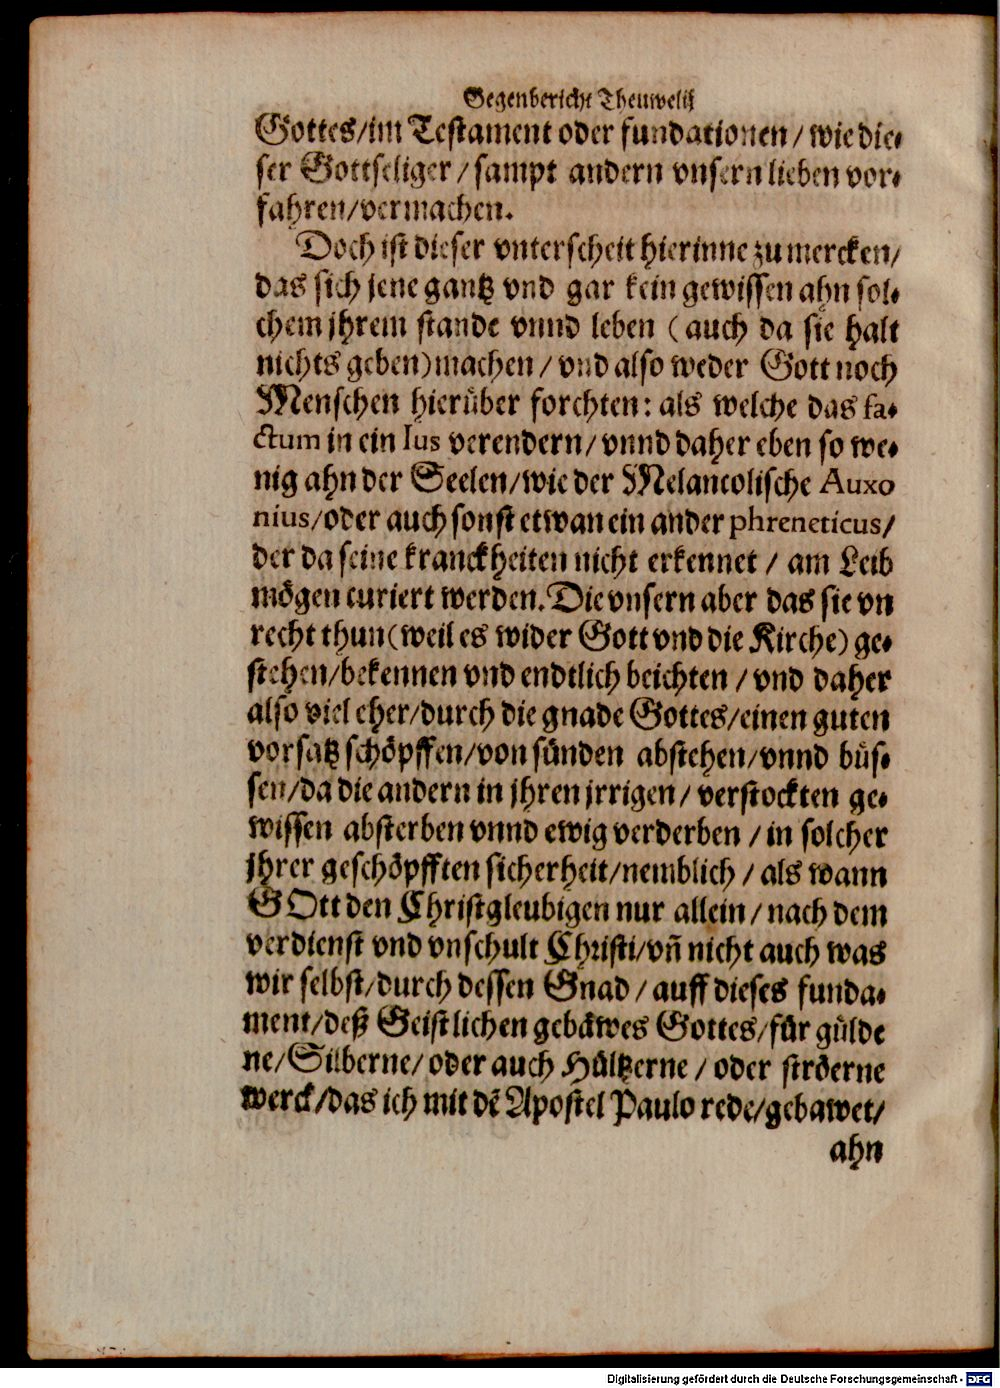 Gegenbericht Theuwelij
Gottes/im Testament oder fundationen/ wie die-
ser Gottseliger/ sampt andern vnsern lieben vor-
fahren/vermachen.
Doch ist dieser vnterscheit hierinne zu mercken/
das sich jene gantz vnd gar kein gewissen ahn sol-
chem jhrem stande vnnd leben (auch da sie halt
nichts geben) machen/ vnd also weder Gott noch
Menschen hierüber forchten: als welche das fa-
ctum in ein Ius verendern/ vnnd daher eben so we-
nig ahn der Seelen/wie der Melancolische Auxo
nius/oder auch sonst etwan ein ander phreneticus/
der da seine kranckheiten nicht erkennet/ am Leib
mögen curiert werden. Die vnsern aber das sie vn
recht thun (weil es wider Gott vnd die Kirche) ge-
stehen/bekennen vnd endtlich beichten/ vnd daher
also viel eher/durch die gnade Gottes/einen guten
vorsatz schöpffen/von sünden abstehen/vnnd büs-
sen/da die andern in jhren jrrigen/ verstockten ge-
wissen absterben vnnd ewig verderben/ in solcher
jhrer geschöpfften sicherheit/nemblich/ als wann
GOtt den Christgleubigen nur allein/ nach dem
verdienst vnd vnschult Christi/vñ nicht auch was
wir selbst/durch dessen Gnad/ auff dieses funda-
ment/deß Geistlichen gebäwes Gottes/für gülde
ne/Silberne/ oder auch Hültzerne/ oder ströerne
werck/das ich mit dẽ Apostel Paulo rede/gebawet/
ahn
Digitalisierung gefördert durch die Deutsche Forschungsgemeinschaft - DFG